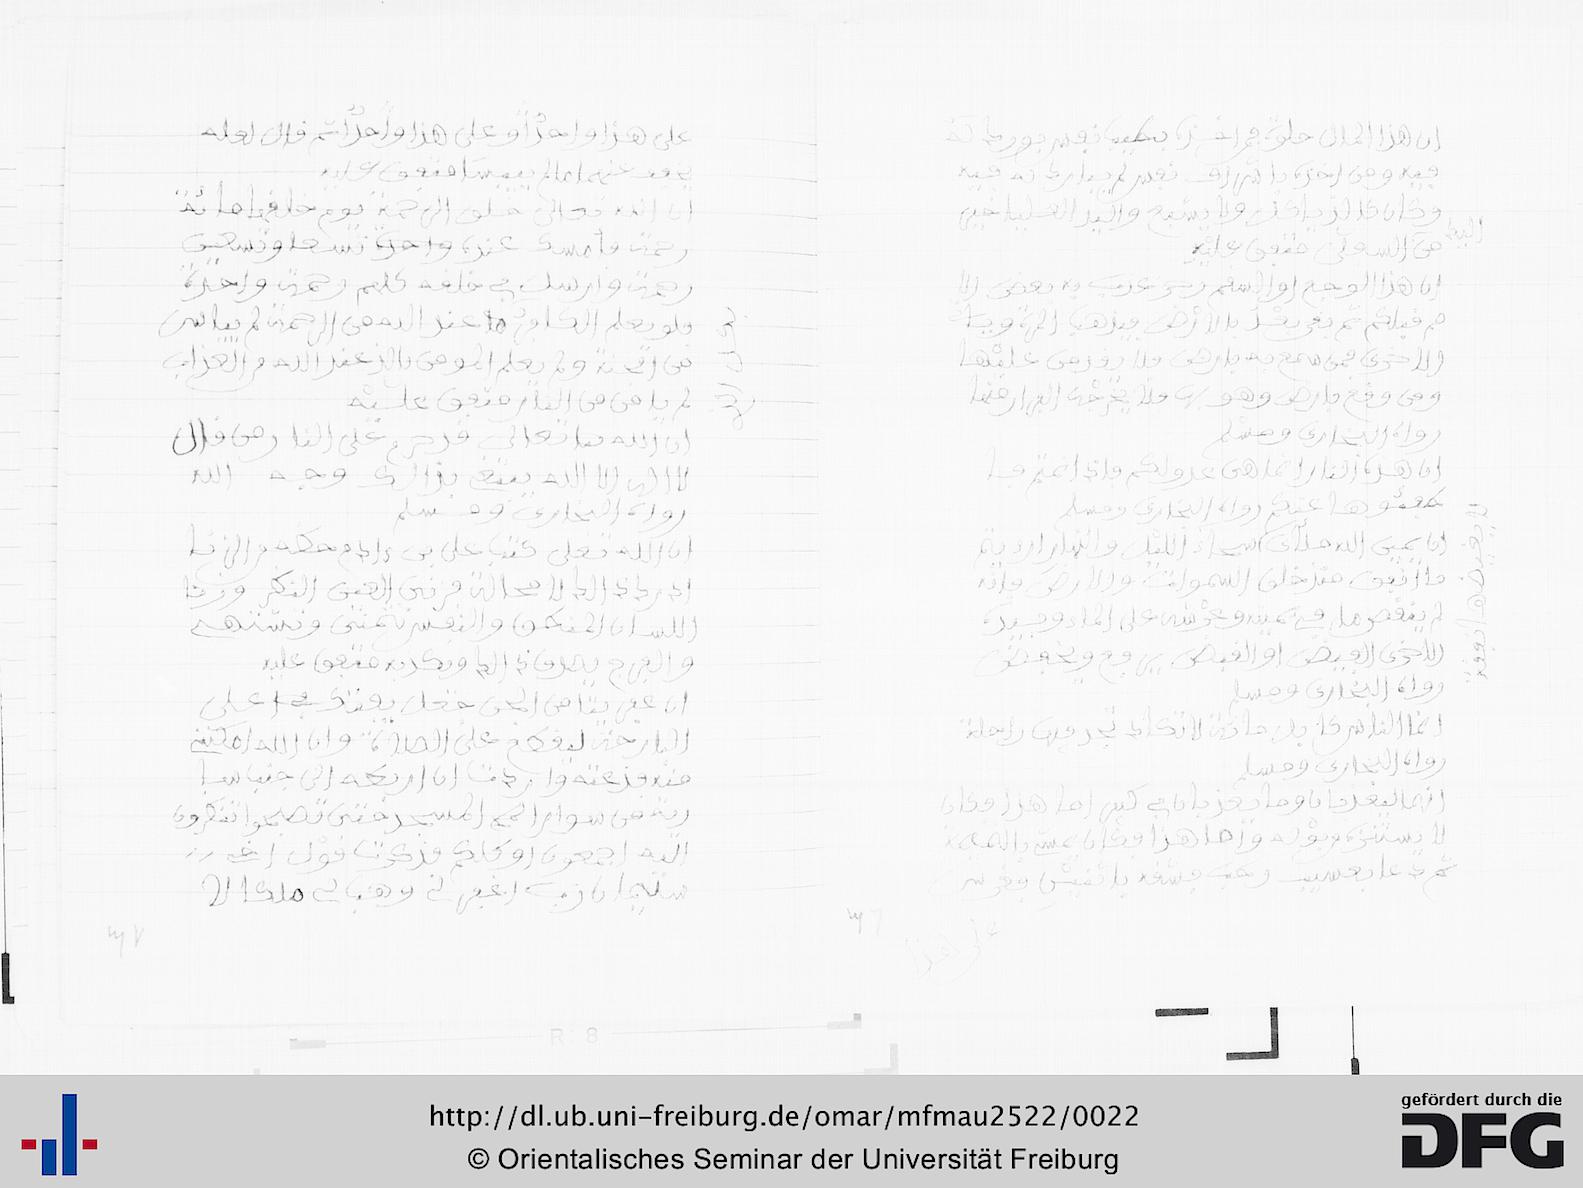 ان هذا المال حلوة من اخذه بطيب نفس بورك له
فيه ومن اخذه باشراف نفس لم يبارك له فيه
وكان كالذي ياكل ولا يشبع واليد العليا خير
من السفلى متفق عليه
اليد
ان هذا الوجع او السقم رجز عذب به بعض الا
مم قبلكم ثم بقي بعد بالارض فيذهب المرة وياتي
الاخرى فمن سمع به بارض فلا يقدمن عليها
ومن وقع بارض وهو بها فلا يخرجه الفرار منها
رواه البخاري ومسلم
ان هذه النار انما هي عدو لكم فاذا نمتم فا
طفئوها عنكم رواه البخاري ومسلم
ان يمين الله ملأى سحاء الليل والنهار ارايتم
لا يغيضها نفقة
ما انفق منذ خلق السموات والارض فانه
لم ينقص ما في يمينه وعرشه على الماء وبيده
الاخرى الفيض او القبض يرفع ويخفض
رواه البخاري ومسلم
انما الناس كابل مائة لا تكاد تجد فيها راحلة
رواه البخاري ومسلم
انهما ليعذبان وما يعذبان في كبير اما هذا فكان
لا يستتر من بوله واما هذا فكان يمشي بالنميمة
ثم دعا بعسيب رطب فشقه باثنين فغرس
على هذا
على هذا واحدا وعلى هذا واحدا ثم قال لعله
يخفف عنهما ما لم ييبسا متفق عليه
ان الله تعالى خلق الرحمة يوم خلقها مائة
رحمة فامسك عنده واحدة تسعا وتسعين
رحمة وارسل في خلقه كلهم رحمة واحدة
فلو يعلم الكافر ما عند الله من الرحمة لم يياس
من الجنة ولو يعلم المومن بالذي عند الله من العذاب
لم يامن من النار متفق عليه
ان الله تعالى قد حرم على النار من قال
لا اله الا الله يبتغي بذالك وجه الله
رواه البخاري ومسلم
ان الله تعلى كتب على بن ءادم حظه من الزنا
ادرك ذالك لا محالة فزنى العين النظر وزنا
اللسان المنطق والنفس تمنى وتشتهي
والفرج يصدق ذالك ويكذبه متفق عليه
ان عفريتا من الجن جعل يفتك علي
البارحة ليقطع على الصلاة وان الله امكنني
منه فذعته واردت ان اربطه الى جنب سا
رية من سواري المسجد حتى تصبحوا تنظرون
اليه اجمعون او كلكم فذكرت قول اخي
سليمان رب اغفر لي وهب لي ملكا لا
R 8
http://dl.ub.uni-freiburg.de/omar/mfmau2522/0022
© Orientalisches Seminar der Universität Freiburg
gefördert durch die
DFG